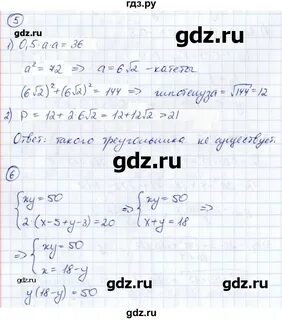 гдз.ру
5
1) 0,5·a·a = 36
a² = 72 ⇒ a = 6√2 - катеты
(6√2)² + (6√2)² = 144 ⇒ гипотенуза = √144 = 12
2) P = 12 + 2·6√2 = 12 + 12√2 > 21
Ответ: такого треугольника не существует.
6
{ xy = 50
2·(x-5+y-3) = 20 ⇒ { xy = 50
x+y = 18 ⇒
⇒ { xy = 50
x = 18-y
y(18-y) = 50
gdz.ru
gdz.ru
gdz.ru
gdz.ru
gdz.ru